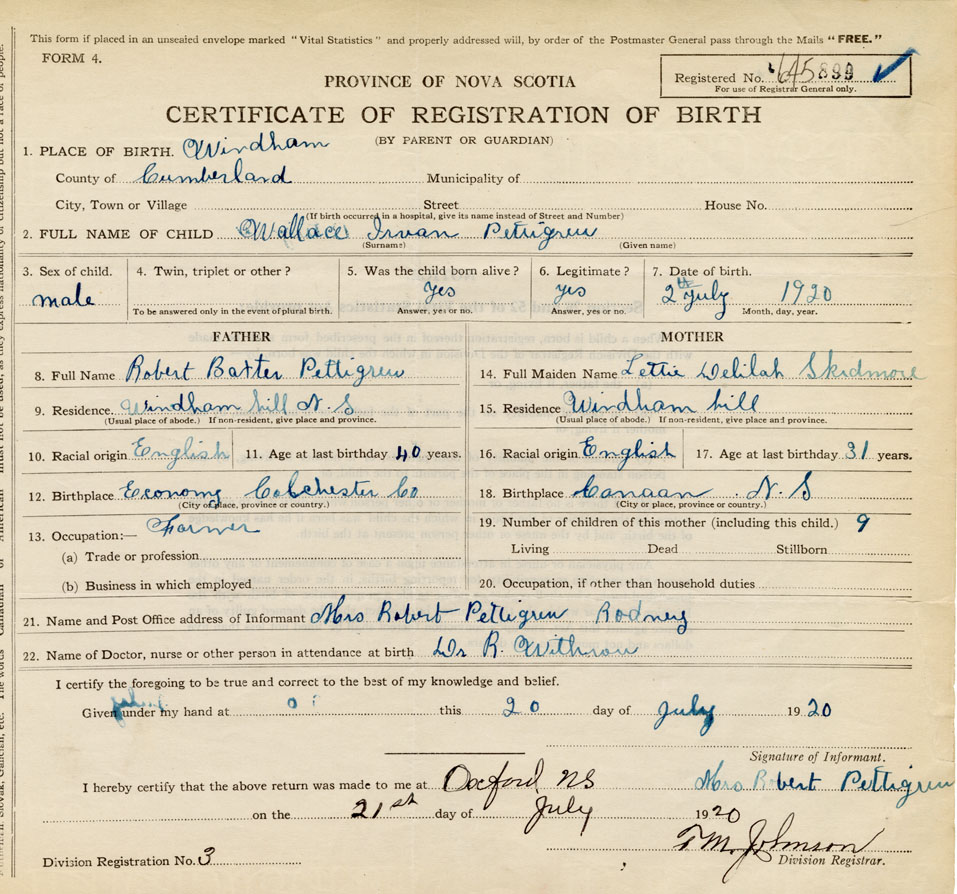 This form if placed in an unsealed envelope marked "Vital Statistics" and properly addressed will, by order of the Postmaster General pass through the Mails "FREE."
FORM 4.
PROVINCE OF NOVA SCOTIA
Registered No. 645899
For use of Registrar General only.
CERTIFICATE OF REGISTRATION OF BIRTH
(BY PARENT OR GUARDIAN)
1. PLACE OF BIRTH. Windham
County of Cumberland Municipality of
City, Town or Village Street House No.
(If birth occurred in a hospital, give its name instead of Street and Number)
2. FULL NAME OF CHILD Wallace Irvan Pettigrew
(Surname) (Given name)
3. Sex of child. 4. Twin, triplet or other? 5. Was the child born alive? 6. Legitimate? 7. Date of birth.
male yes yes 2th July 1920
To be answered only in the event of plural birth. Answer, yes or no. Answer, yes or no. Month, day, year.
FATHER MOTHER
8. Full Name Robert Baxter Pettigrew 14. Full Maiden Name Lettie Delilah Skidmore
9. Residence. Windham hill N.S 15. Residence Windham hill
(Usual place of abode.) If non-resident, give place and province. (Usual place of abode.) If non-resident, give place and province.
10. Racial origin English 11. Age at last birthday 40 years. 16. Racial origin English 17. Age at last birthday 31 years.
12. Birthplace Economy Colchester Co 18. Birthplace Canaan . N. S
(City or place, province or country.) (City or place, province or country.)
13. Occupation:— Farmer 19. Number of children of this mother (including this child.) 9
(a) Trade or profession Living Dead Stillborn
(b) Business in which employed 20. Occupation, if other than household duties
21. Name and Post Office address of Informant Mrs Robert Pettigrew Rodney
22. Name of Doctor, nurse or other person in attendance at birth Dr R. Withrow
I certify the foregoing to be true and correct to the best of my knowledge and belief.
Given under my hand at this 20 day of July 1920
Signature of Informant.
I hereby certify that the above return was made to me at Oxford NS Mrs Robert Pettigrew
on the 21st day of July 1920
T. M. Johnson
Division Registration No. 3 Division Registrar.